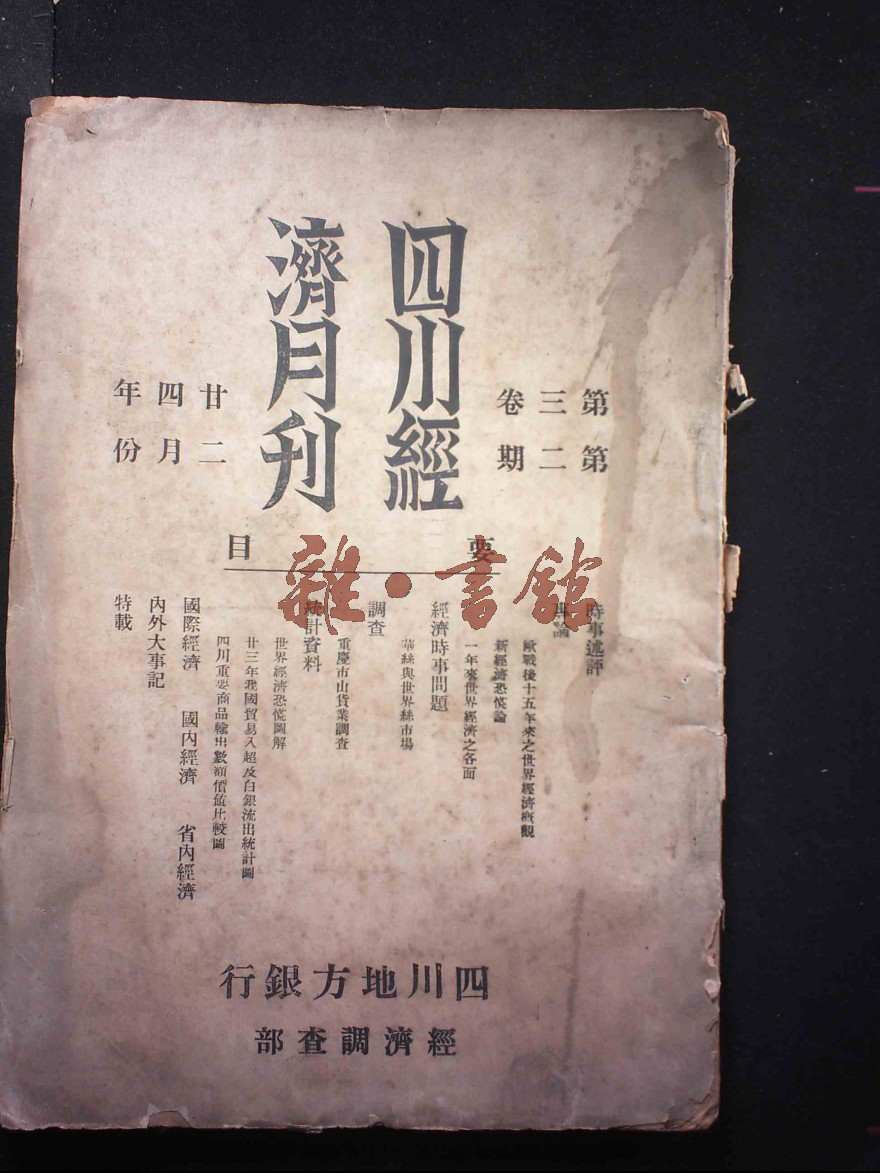 四川經
濟月刊
第三卷
第二期
廿四年
二月份
要目
時事述評
專論
歐戰後十五年來之世界經濟概觀
新經濟恐慌論
一年來世界經濟之各面
經濟時事問題
華絲與世界絲市場
調查
重慶市山貨業調查
統計資料
世界經濟恐慌圖解
廿三年我國貿易入超及白銀流出統計圖
四川重要商品輸出數額價值比較圖
國際經濟 國內經濟 省內經濟
內外大事記
特載
四川地方銀行
經濟調查部
雜·書館